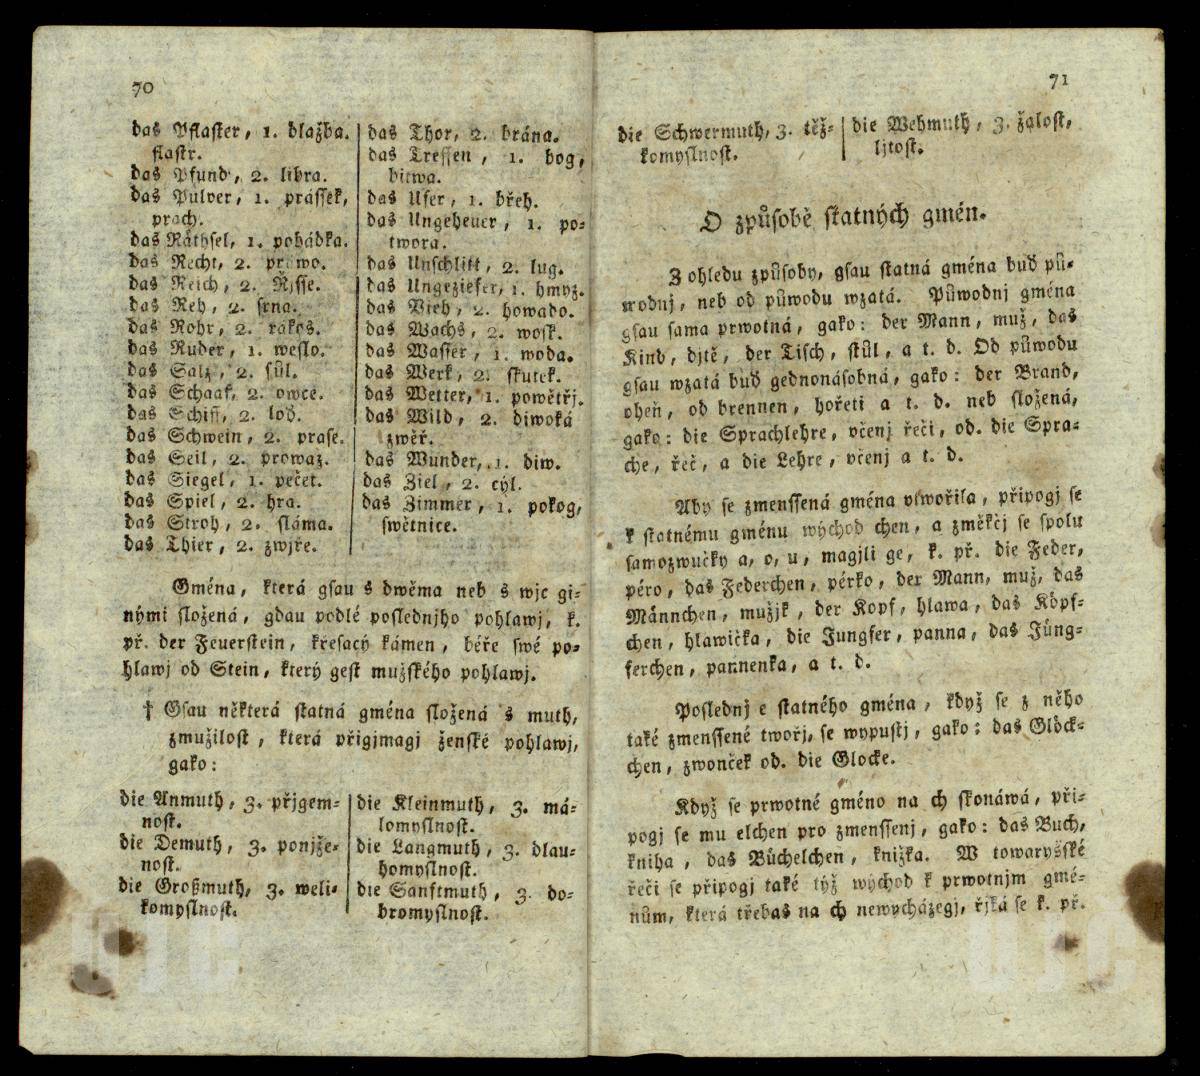 70
das Pflaster, 1. dlažba.
flastr.
das Pfund, 2. libra.
das Pulver, 1. prássek,
prach.
das Räthsel, 1. pohádka.
das Recht, 2. prawo.
das Reich, 2. Ržsse.
das Reh, 2. srna.
das Rohr, 2. rákos.
das Ruder, 1. weslo.
das Salz, 2. sůl.
das Schaaf, 2. owce.
das Schiff, 2. loď.
das Schwein, 2. prase.
das Seil, 2. prowaz.
das Siegel, 1. pečet.
das Spiel, 2. hra.
das Stroh, 2. sláma.
das Thier, 2. zwjře.
das Thor, 2. brána.
das Treffen, 1. bog,
bitwa.
das Ufer, 1. břeh.
das Ungeheuer, 1. po-
twora.
das Unschlitt, 2. lug.
das Ungeziefer, 1. hmyz.
das Vieh, 2. howado.
das Wachs, 2. wosk.
das Wasser, 1. woda.
das Werk, 2. skutek.
das Wetter, 1. powětřj.
das Wild, 2. diwoká
zwěř.
das Wunder, 1. diw.
das Ziel, 2. cýl.
das Zimmer, 1. pokog,
swětnice.
Gména, která gsau s dwěma neb s wjc gi-
nými složená, gdau podlé poslednjho pohlawj, k.
př. der Feuerstein, křesacý kámen, béře swé po-
hlawj od Stein, který gest mužského pohlawj.
† Gsau některá statná gména složená s muth,
zmužilost, která přigjmagj ženské pohlawj,
gako:
die Anmuth, 3. přjgem-
nost.
die Demuth, 3. ponjže-
nost.
die Großmuth, 3. weli-
komyslnost.
die Kleinmuth, 3. má-
lomyslnost.
die Langmuth, 3. dlau-
homyslnost.
die Sanftmuth, 3. do-
bromyslnost.
71
die Schwermuth, 3. těž-
komyslnost.
die Wehmuth, 3. žalost,
ljtost.
O způsobě statných gmén.
Z ohledu způsoby, gsau statná gména buď pů-
wodnj, neb od půwodu wzatá. Půwodnj gména
gsau sama prwotná, gako: der Mann, muž, das
Kind, djtě, der Tisch, stůl, a t. d. Od půwodu
gsau wzatá buď gednonásobná, gako: der Brand,
oheň, od brennen, hořeti a t. d. neb složená,
gako: die Sprachlehre, včenj řeči, od. die Spra-
che, řeč, a die Lehre, včenj a t. d.
Aby se zmenssená gména vtwořila, připogj se
k statnému gménu wýchod chen, a změkčj se spolu
samozwučky a, o, u, magjli ge, k. př. die Feder,
péro, das Federchen, pérko, der Mann, muž, das
Männchen, mužjk, der Kopf, hlawa, das Köpf-
chen, hlawička, die Jungfer, panna, das Jüng-
ferchen, pannenka, a t. d.
Poslednj e statného gména, když se z něho
také zmenssené twořj, se wypustj, gako: das Glöck-
chen, zwonček od. die Glocke.
Když se prwotné gméno na ch skonáwá, při-
pogj se mu elchen pro zmenssenj, gako: das Buch,
kniha, das Büchelchen, knižka. W towaryšské
řeči se připogj také týž wýchod k prwotnjm gmé-
nům, která třebas na ch newycházegj, řjká se k. př.